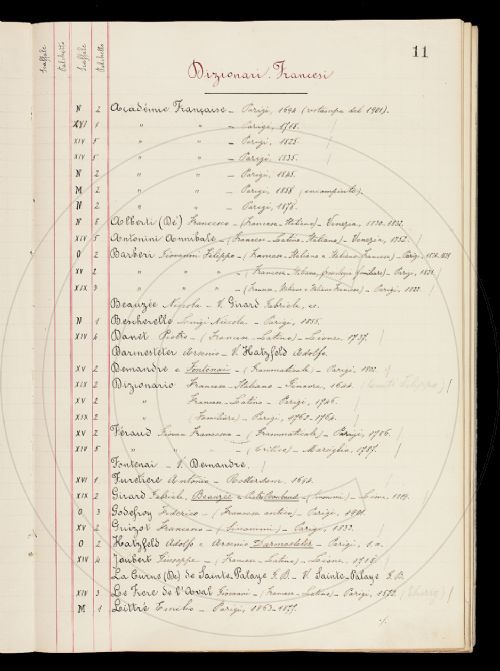 11
Scaffale Palchetto Scaffale Palchetto
Dizionari Francesi
N 2 Académie Française – Parigi, 1694 (ristampa del 1901).
XVI 1 " " – Parigi, 1718.
XIV 5 " " – Parigi, 1825.
XIV 5 " " – Parigi, 1835.
N 2 " " – Parigi,
M 2 " " – Parigi, 1858 (incompiuto).
N 2 " " – Parigi, 1878.
N 8 Alberti (De) Francesco – (Francese-Italiano) – Venezia,
XIV 5 Antonini Annibale – (Francese-Latino-Italiano) – Venezia, 1752.
O 2 Barberi Giovanni Filippo – (Francese-Italiano e Italiano Francese) – Parigi,
XV 2 " " – (Francese-Italiano, familiare) – Parigi,
XIX 3 " " – (Francese, Italiano e Italiano Francese) – Parigi,
Beauzée Niccola – V. Girard Gabriele, ec.
N 1 Bescherelle Luigi Niccola – Parigi, 1855.
XIV 4 Danet Pietro – (Francese-Latino) – Lione, 1737.
Darmesteter Arsenio – V. Hatzfeld Adolfo.
XV 2 Demandre e Fontenai – (Grammaticale) – Parigi, 1802.
XIX 2 Dizionario Francese-Italiano – Ginevra, 1644.
XV 2 " Francese-Latino – Parigi, 1746.
XIX 2 " (Familiare) – Parigi, 1762-1764.
XV 2 Féraud Francesco – (Grammaticale) – Parigi, 1786.
XIV 5 " " " – (Critico) – Marsiglia, 1787.
Fontenai – V. Demandre.
XVI 1 Furetière Antonio – Rotterdam, 1694.
XIX 2 Girard Gabriele, Beauzée e – (Sinonimi) –
O 3 Godefroy Federico – (Francese antico) – Parigi,
XV 2 Guizot Francesco – (Sinonimi) – Parigi, 1833.
O 2 Hatzfeld Adolfo e Arsenio Darmesteter – Parigi, s.a.
XIV 4 Joubert Giuseppe – (Francese-Latino) – Lione, 1718
La Curne (De) de Sainte-Palaye G. B. – V. Sainte-Palaye G. B.
XIV 3 Le Frere de l'Aval Giovanni – (Francese-Latino) – Parigi, 1572.
M 1 Littré Emilio – Parigi, 1863-1877.